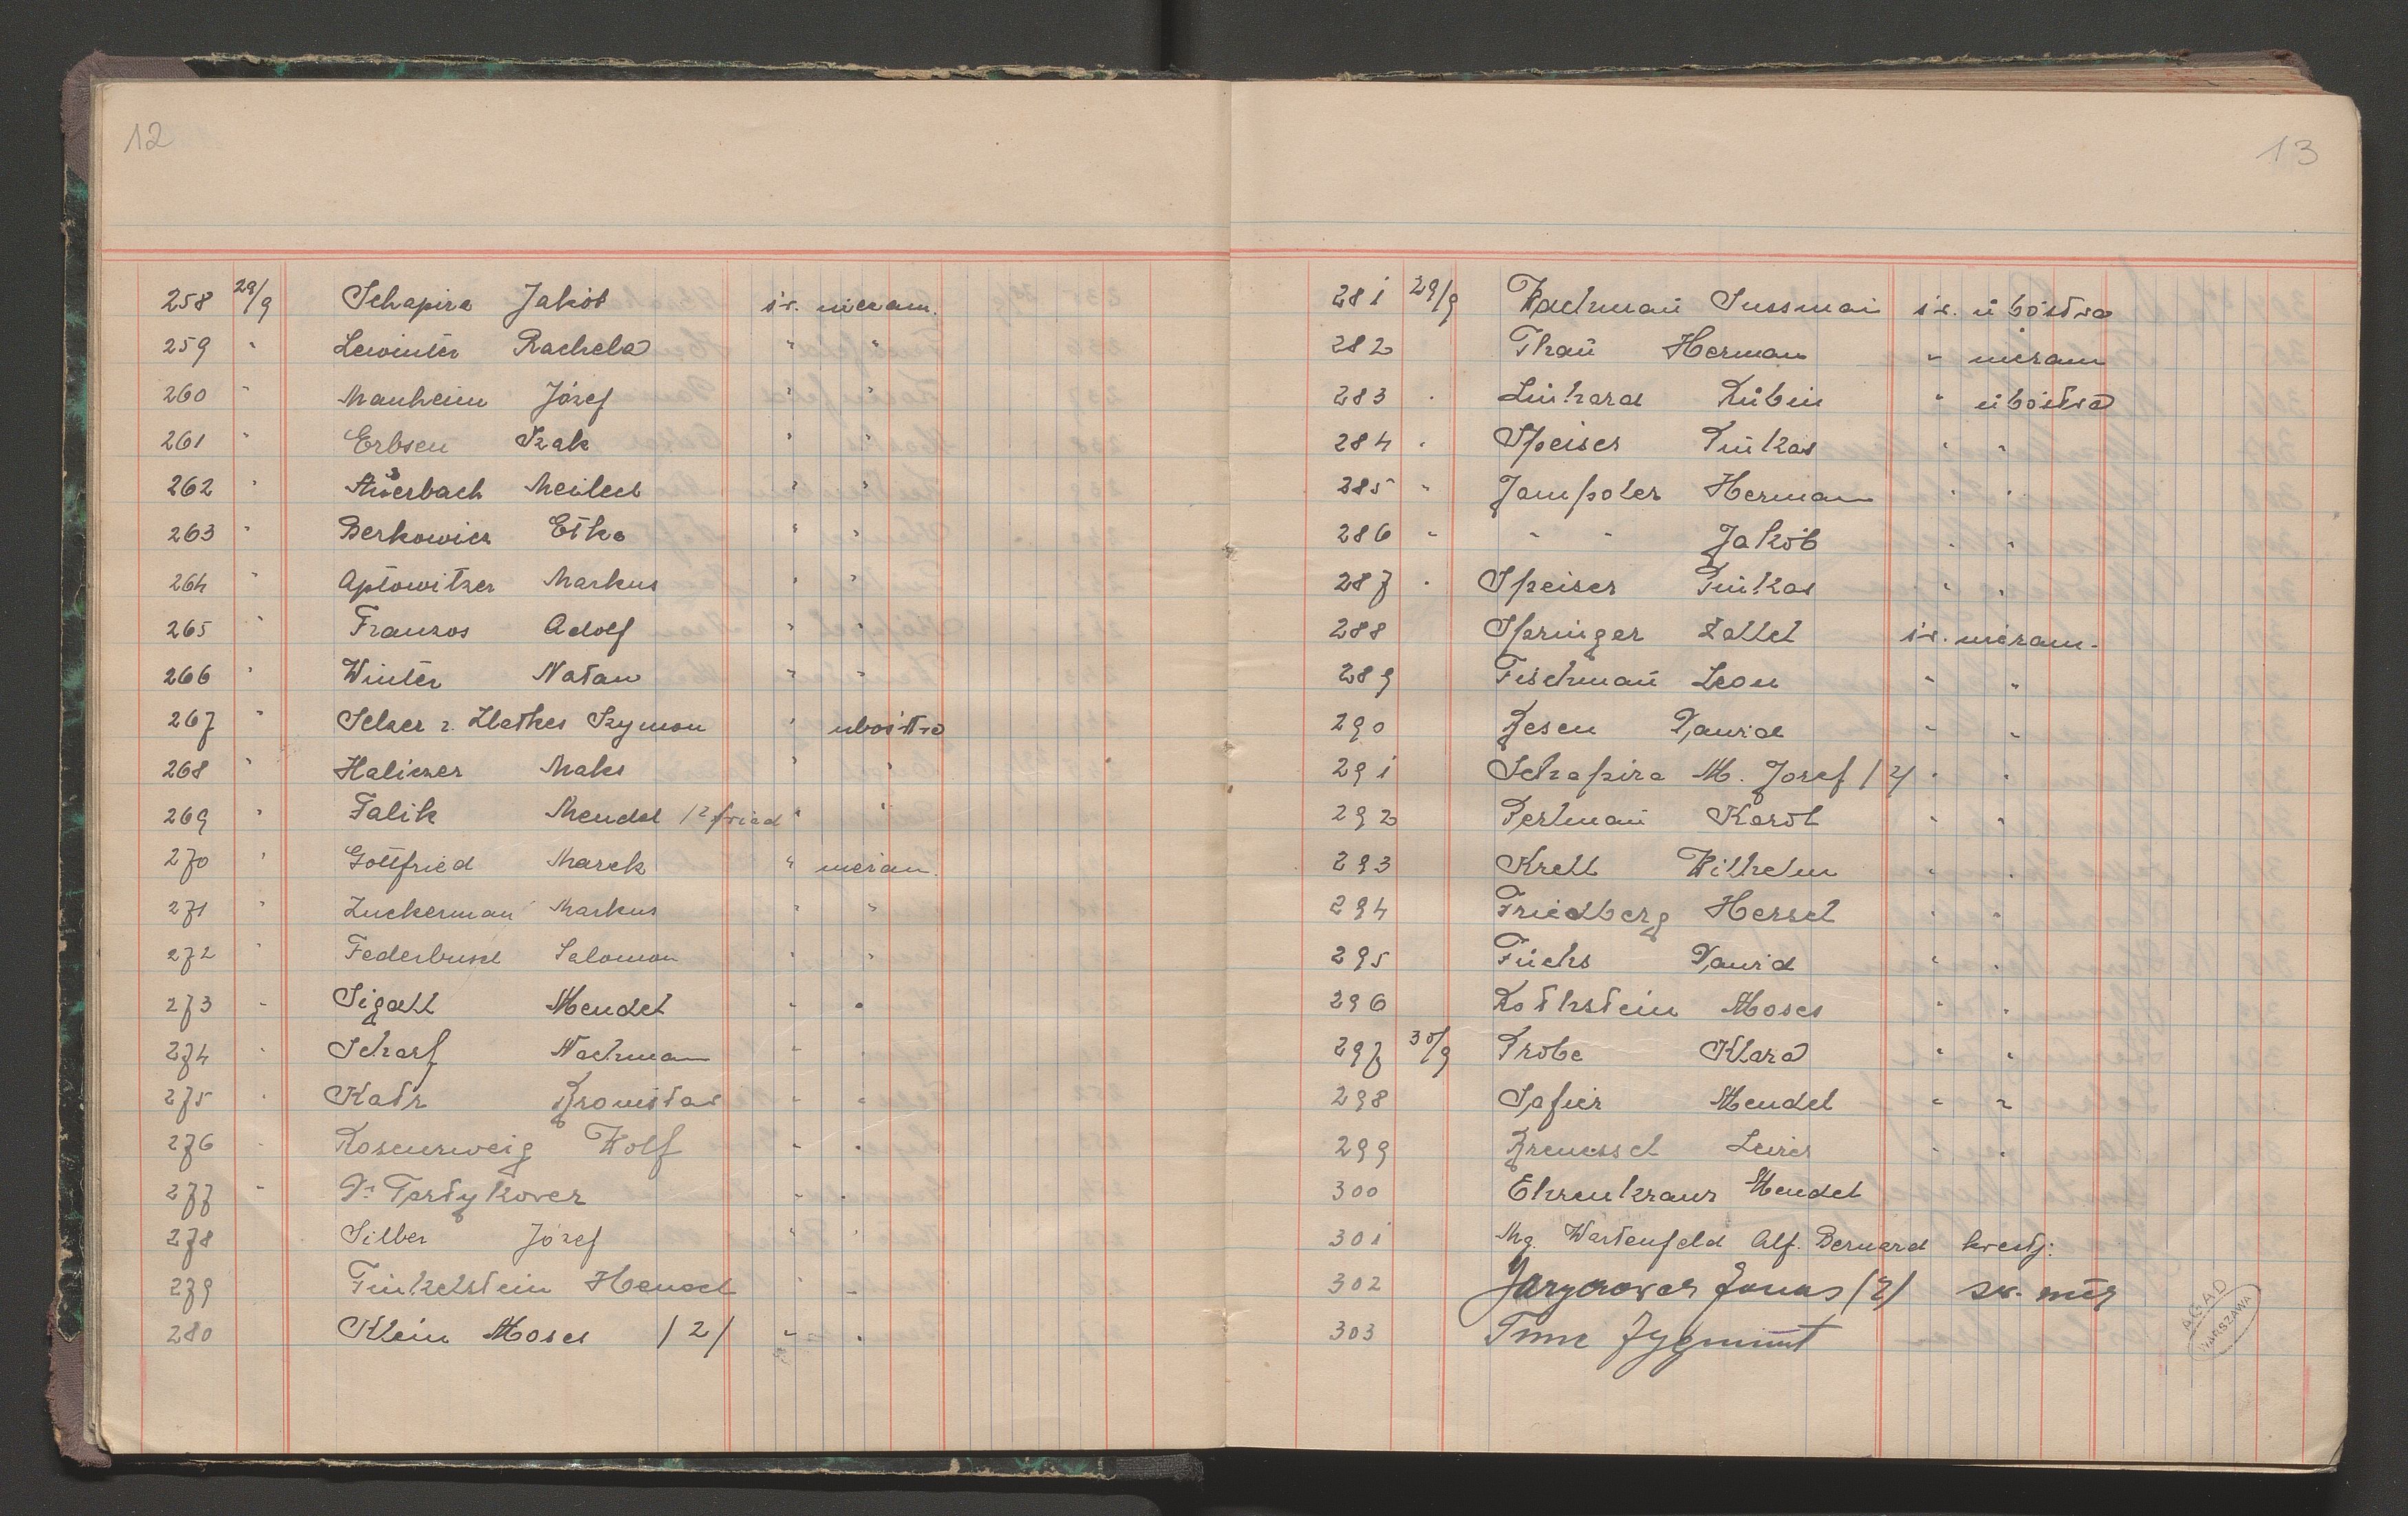 12
258 29/9 Schapira Jakób św. nieram.
259 " Lewinter Rachela " "
260 " Manheim Józef " "
261 " Erbsen Izak " "
262 " Auerbach Meilech " "
263 " Berkowicz Etka " "
264 " Aptowitzer Markus " "
265 " Franzos Adolf " "
266 " Winter Natan " "
267 " Selzer v. Zlatkes Szymon " ubóstwa
268 " Haliczer Maks " "
269 " Falik Mendel " "
270 " Gottfried Marek "
271 " Zuckerman Markus " "
272 " Federbusch Salomon " "
273 " Sigall Mendel " "
274 " Scharf Nachman " "
275 " Katz Bronisław " "
276 " Rosenzweig Wolf " "
277 " Dr " "
278 Silber Józef " "
279 Finkelstein Henoch " "
280 Klein Moses /2/ " "
13
281 29/9 Wachman Sussman św. ubóstwa
282 Thau Herman "
283 " Linhard Rubin " ubóstwa
284 " Speiser Pinkas " "
285 " Jampoler Herman " "
286 " " " Jakób " "
287 " Speiser Pinkas " "
288 Springer św.
289 Fischman Leon " "
290 Besen Dawid " "
291 Schapira M. Józef /2/ " "
292 Perlman Karol " "
293 Krell Wilhelm " "
294 Friedberg Hersch " "
295 Fuchs Dawid " "
296 Rothstein Moses " "
297 30/9 Probe Klara " "
298 Safier Mendel " "
299 " "
300 Ehrenkranz Mendel
301 Mg. Wartenfeld Alf. Bernard kwestj.
302 Jonas (2) św.
303 Zygmunt
AGAD
WARSZAWA